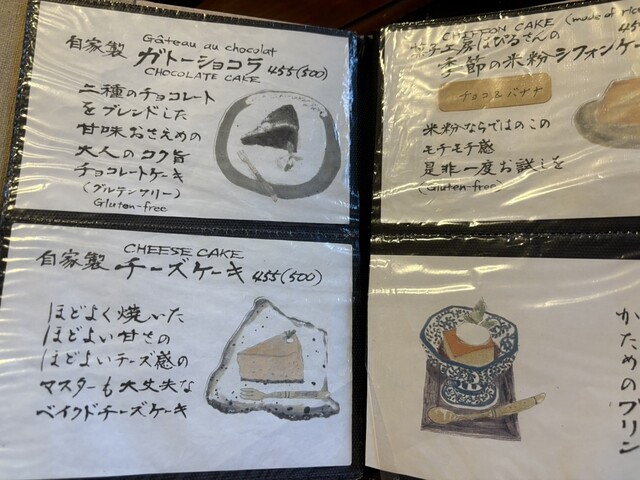 Gâteau au chocolat
自家製 ガトーショコラ 455(500)
CHOCOLATE CAKE
二種のチョコレート
をブレンドした
甘味おさえめの
大人のコク旨
チョコレートケーキ
(グルテンフリー)
Gluten-free
CHEESE CAKE
自家製 チーズケーキ 455(500)
ほどよく焼いた
ほどよい甘さの
ほどよいチーズ感の
マスターも大丈夫な
ベイクドチーズケーキ
CHIFFON CAKE (made of
工房はびるさんの
季節の米粉シフォンケ
チョコ&バナナ
米粉ならではのこの
モチモチ感
是非一度お試しを
(Gluten-free
かためのプリン